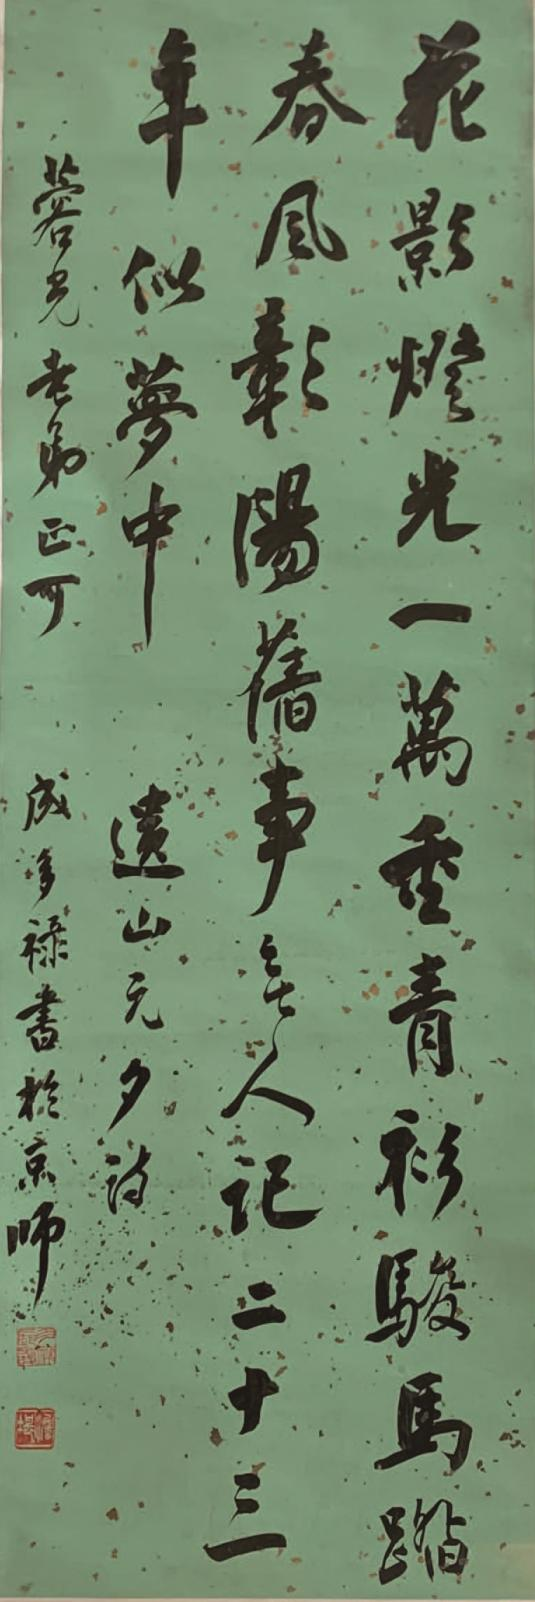 花影燈光一萬重青衫駿馬踏
春風彰陽舊事無人記二十三
年似夢中 遺山元夕詩
蓉光老弟正可 成多祿書於京師